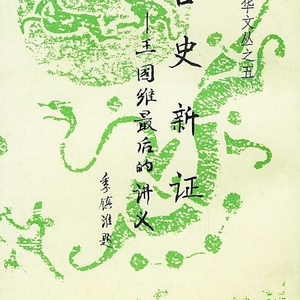 华文丛之五
古史新证
—王国维最后的讲义
季镇淮题